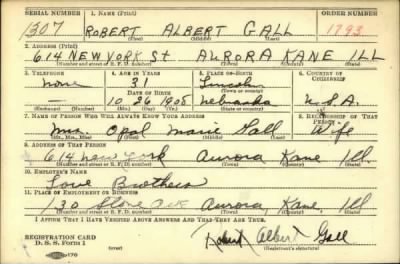 SERIAL NUMBER 1. NAME (Print) ORDER NUMBER
1307 ROBERT ALBERT GALL 1793
2. ADDRESS (Print)
614 NEW YORK St AURORA KANE ILL
(Number and street or R. F. D. number) (Town) (County) (State)
3. TELEPHONE 4. AGE IN YEARS 5. PLACE OF BIRTH 6. COUNTRY OF CITIZENSHIP
None 31 Lincoln
DATE OF BIRTH (Town or county)
— 10 26 1905 Nebraska U.S.A.
(Exchange) (Number) (Mo.) (Day) (Yr.) (State or country)
7. NAME OF PERSON WHO WILL ALWAYS KNOW YOUR ADDRESS 8. RELATIONSHIP OF THAT PERSON
Mrs. Opal Marie Gall Wife
(Mr., Mrs., Miss) (First) (Middle) (Last)
9. ADDRESS OF THAT PERSON
614 New York Aurora, Kane, Ill.
(Number and street or R. F. D. number) (Town) (County) (State)
10. EMPLOYER'S NAME
Love Brothers
11. PLACE OF EMPLOYMENT OR BUSINESS
130 Stone Ave Aurora, Kane, Ill
(Number and street or R. F. D. number) (Town) (County) (State)
I AFFIRM THAT I HAVE VERIFIED ABOVE ANSWERS AND THAT THEY ARE TRUE.
REGISTRATION CARD
D. S. S. Form 1 (over) Robert Albert Gall
(Registrant's signature)